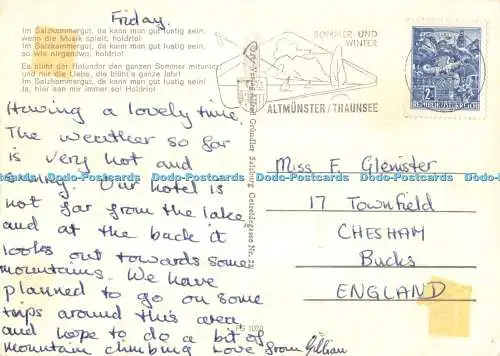 Friday.
Im Salzkammergut, da kann man gut lustig sein,
wenn die Musik spielt, holdrio!
Im Salzkammergut, da kann man gut lustig sein,
so wie nirgendwo, holdrio!
Es blüht der Holunder den ganzen Sommer mitunter
und nur die Liebe, die blüht's ganze Jahr!
Im Salzkammergut, da kann man gut lustig sein!
Ja, hier san mir immer so! Holdrio!
Having a lovely time.
The weather so far
is very hot and
sunny. Our hotel is
not far from the lake
and at the back it
looks out towards some
mountains. We have
planned to go on some
trips around this area
and hope to do a bit of
mountain climbing Love from Gillian
SOMMER UND
WINTER
ALTMÜNSTER/TRAUNSEE
REPUBLIK ÖSTERREICH
Miss F Glenister
17 Townfield
CHESHAM
Bucks
ENGLAND
Dodo-Postcards Dodo-Postcards Dodo-Postcards Dodo-Postcards Dodo-Postcards